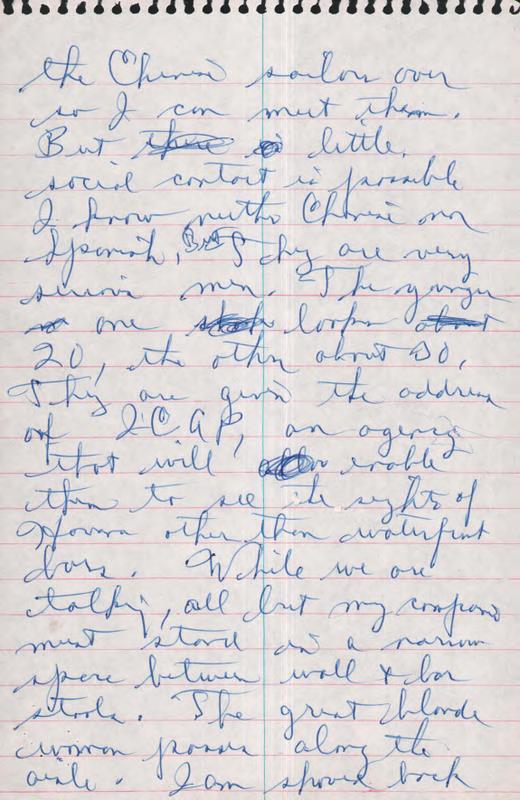 the Chinese sailors over
so I can meet them.
But little
social contact is possible
I know neither Chinese nor
Spanish, But They are very
serious men. The younger
one looks about
20, the other about 30.
They are given the address
of ICAP, an agency
that will enable
them to see the sights of
Havana other than waterfront
bars. While we are
talking, all but my companion
must stand in a narrow
space between wall & bar
stools. The great blonde
woman passes along the
aisle. I am shoved back